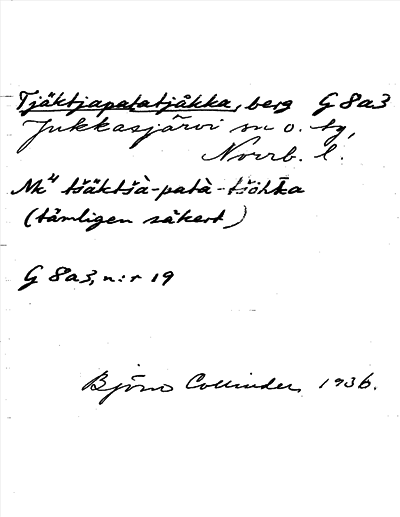 Tjäktjapatatjåkka, berg G 8a3
Jukkasjärvi sn o. tg,
Norrb. l.
Nk⁴ tšäktšà-patà-tšohka
(tämligen säkert)
G 8a3, n:r 19
Björn Collinder 1936.